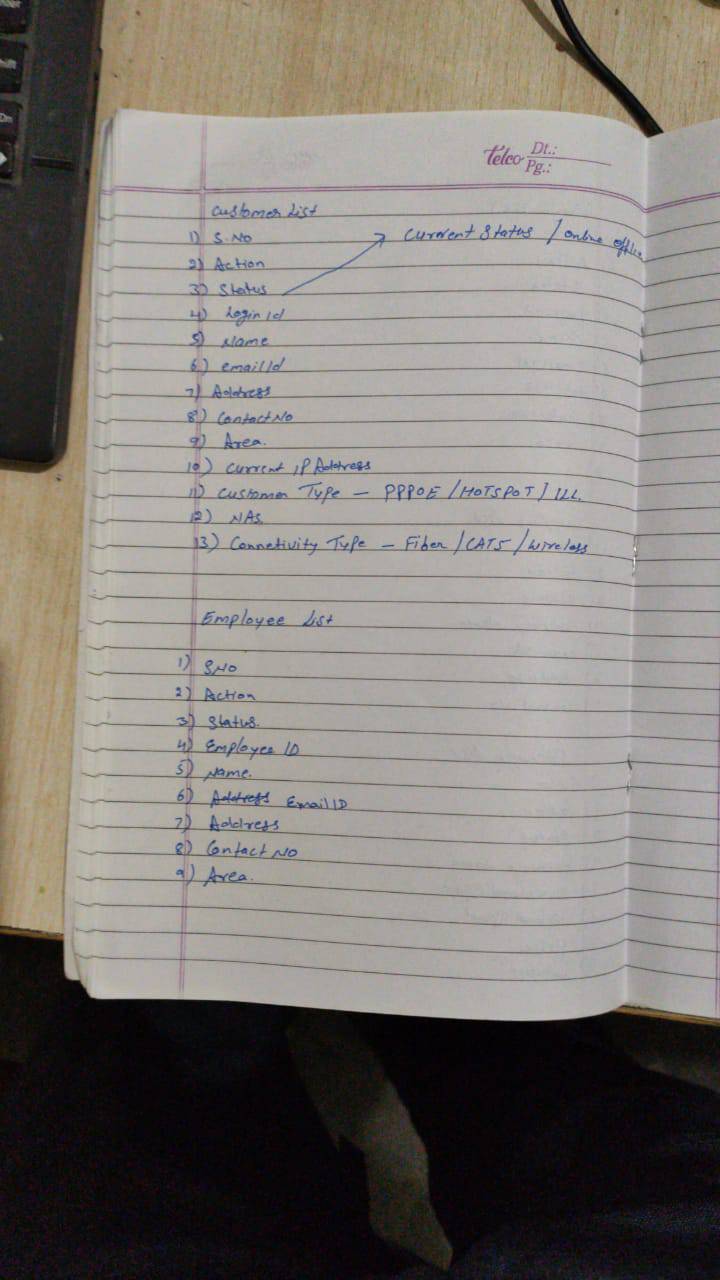 Telco Dt.:
Pg.:
Customer List
1) S.NO
→ Current Status / online offline
2) Action
3) Status
4) Login Id
5) Name
6) email Id
7) Address
8) Contact No
9) Area.
10) Current IP Address
11) Customer Type - PPPOE / HOTSPOT / ILL.
12) NAS.
13) Connetivity Type - Fiber / CAT5 / Wireless
Employee List
1) S.NO
2) Action
3) Status.
4) Employee ID
5) Name.
6) Address Email ID
7) Address
8) Contact No
9) Area.